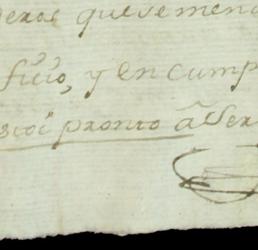 deros que se menc
ficio, y en cump
stoi pronto â ver